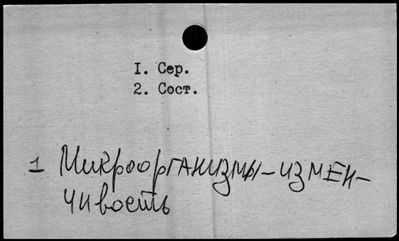 1. Сер.
2. Сост.
1 Микроорганизмы-измен-
чивость